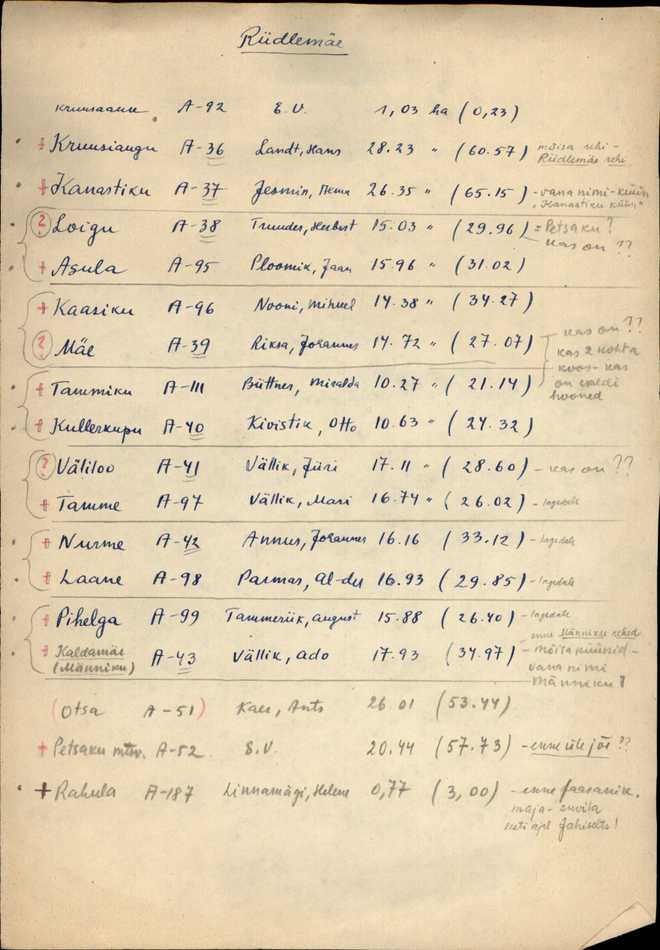 Riidlemäe
Kruusaauk A-92 E.V. 1,03 ha (0,23)
Kruusiaugu A-36 Landt, Hans 28.23 " (60.57) mõisa rehi -
Riidlemäe rehi
Kanastiku A-37 Jesmin, 26.35 " (65.15) - vana nimi - küün
"Kanastiku küün"
? Loigu A-38 Truuder, Herbert 15.03 " (29.96) = Petsaku?
kas on ??
Asula A-95 Ploomik, Jaan 15.96 " (31.02)
Kaasiku A-96 Nooni, Mihuel 14.38 " (34.27)
? Mäe A-39 Riksa, Johannes 14.72 " (27.07) kas on ??
kas 2 kohta
koos - kas
on valdi
hooned
Tammiku A-111 Büttner, Miralda 10.27 " (21.14)
Kullerkupu A-40 Kivistik, Otto 10.63 " (24.32)
? Väliloo A-41 Vällik, Jüri 17.11 " (28.60) - kas on ??
Tamme A-97 Vällik, Mari 16.74 " (26.02) - lagedale
Nurme A-42 Annus, Johannes 16.16 (33.12) - lagedale
Laane A-98 Parmas, Al-der 16.93 (29.85) - lagedale
Pihelga A-99 Tammeriik, August 15.88 (26.40) - lagedale
Kaldamäe A-43 Vällik, Ado 17.93 (34.97) enne Männikse rehed
(Männiku) - mõisa küünid -
vana nimi
Männiku?
(Otsa A-51) Kaer, Ants 26 01 (53.44)
Petsaku mtsv. A-52 E.V. 20.44 (57.73) - enne üle jõe ??
Rahula A-187 Linnamägi, Helene 0,77 (3,00) - enne faasanik.
maja - suvila
eesti ajal